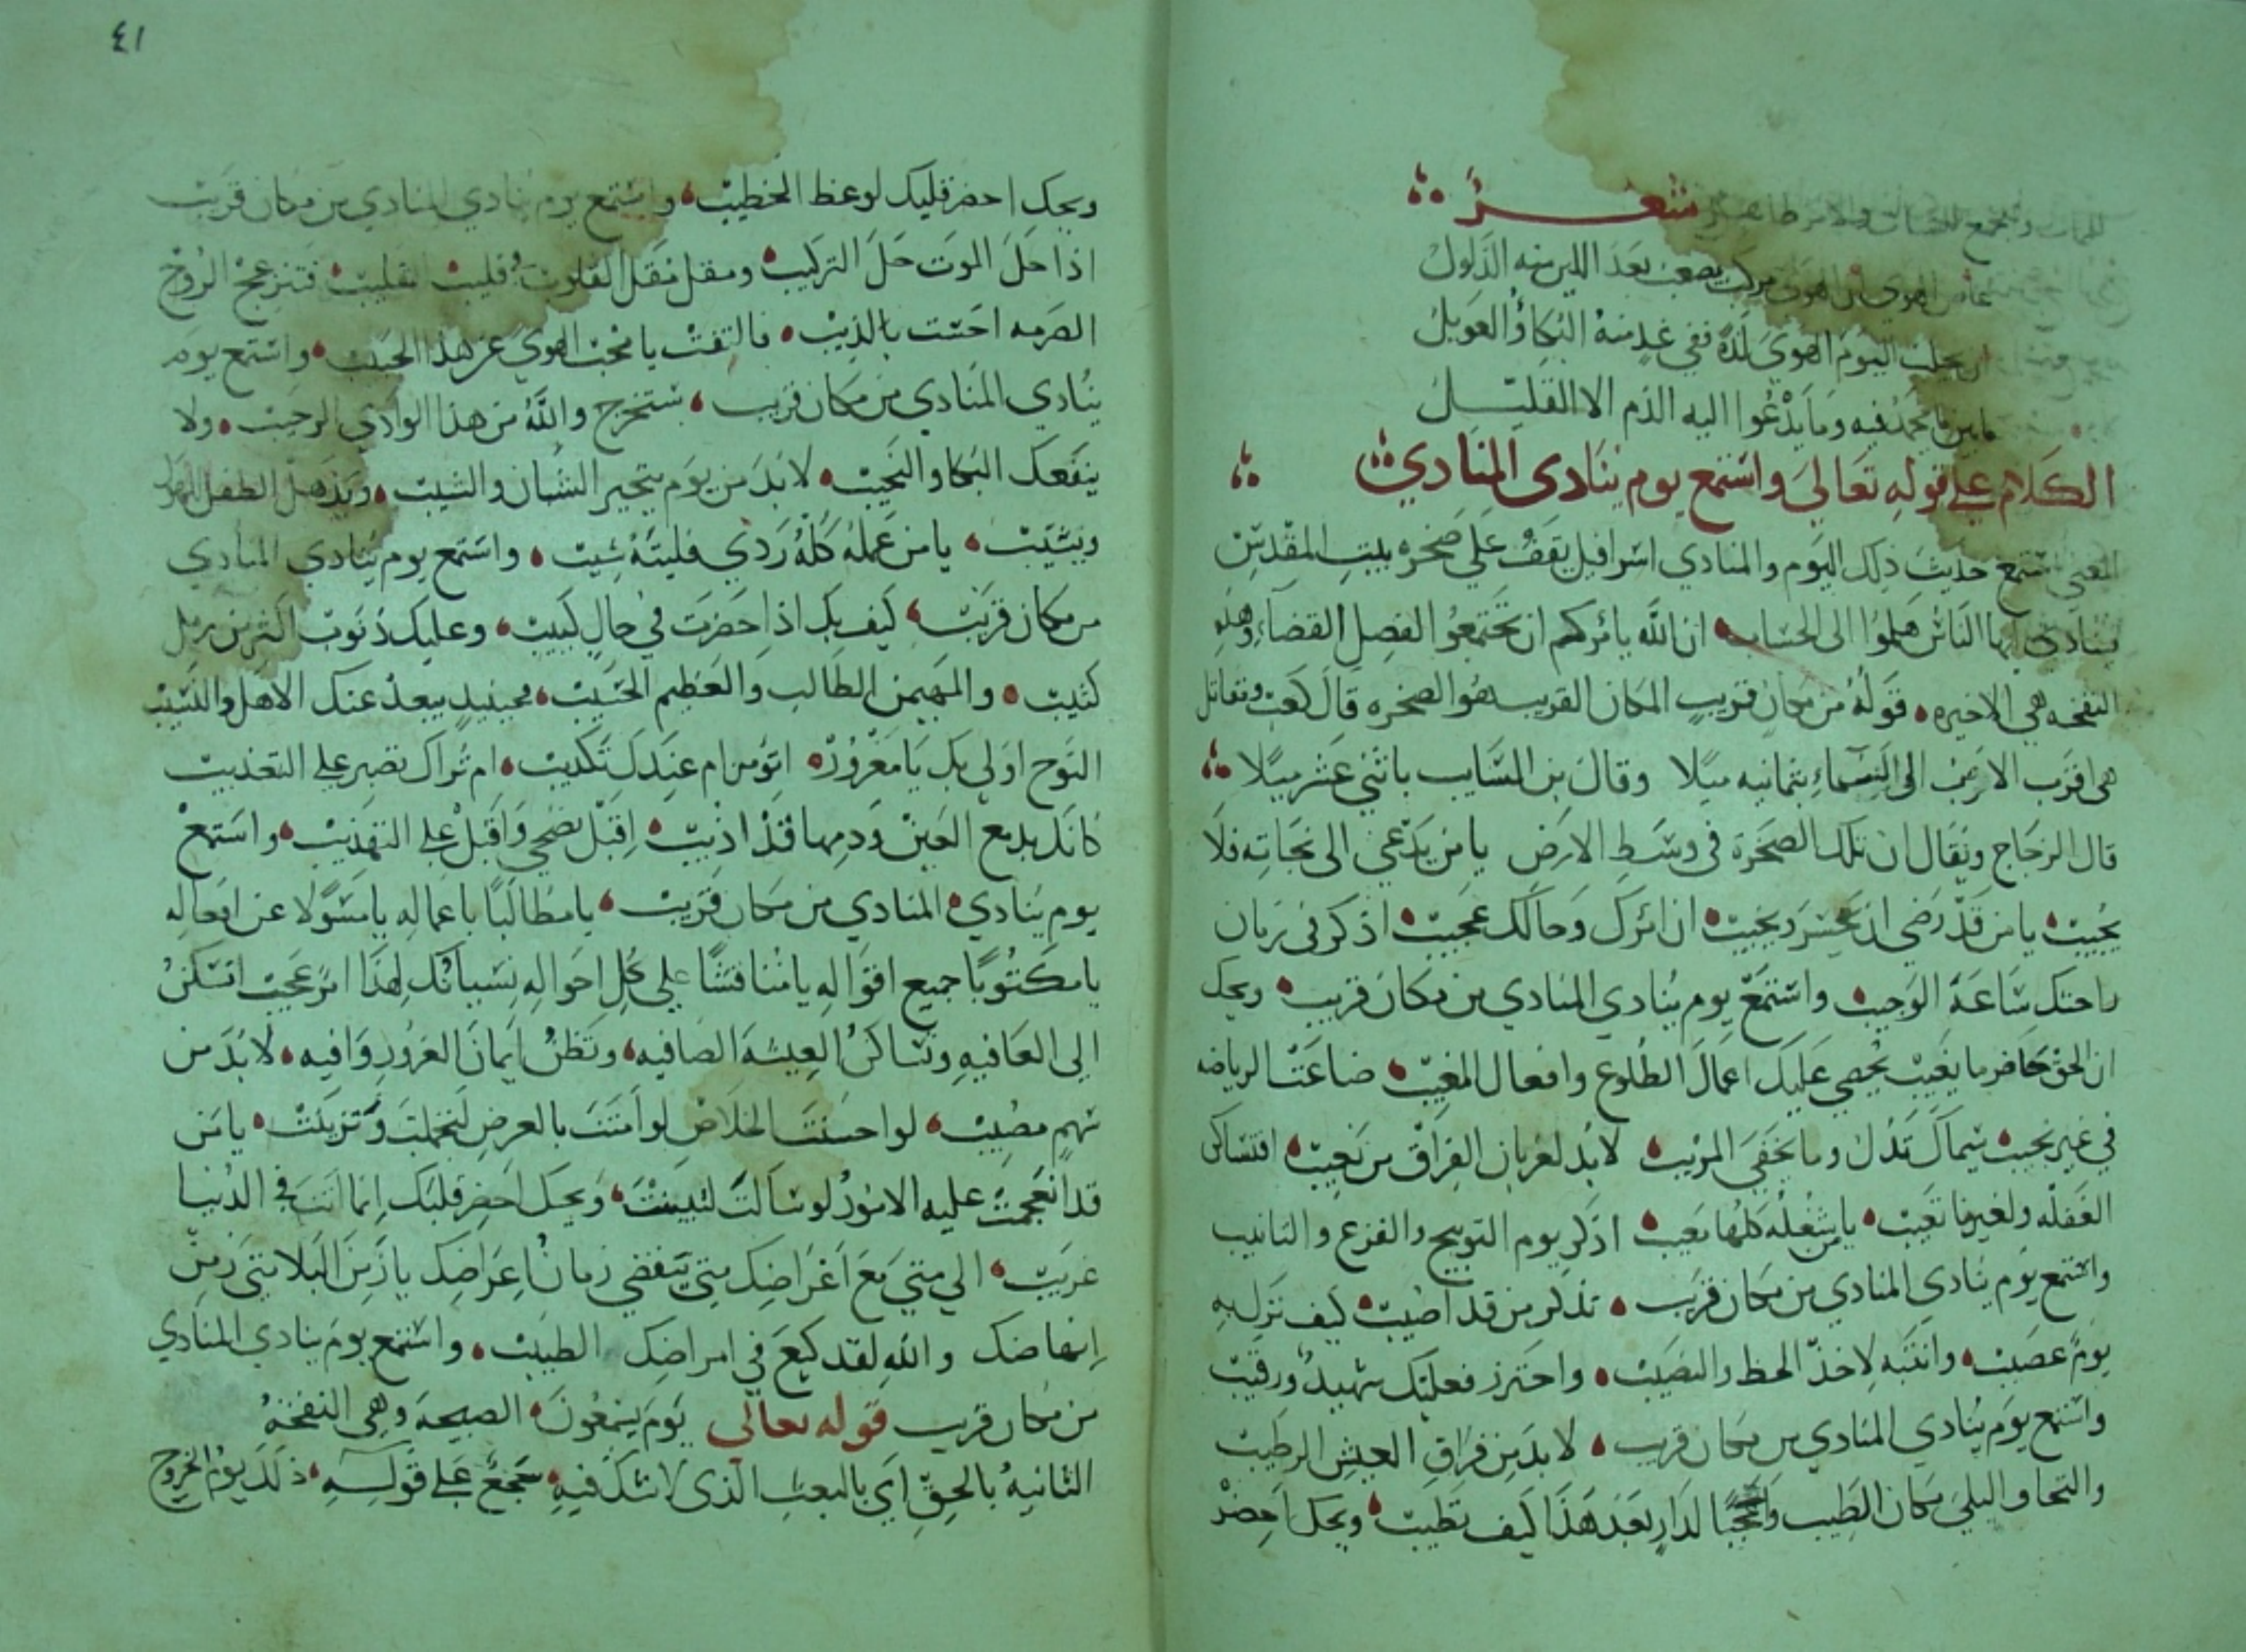 شعر
عاص الهوى ان الهوى مركب يصعب بعد اللين منه الذلول
ان يجلب اليوم الهوى لذة ففي غد منه البكاؤ العويل
ما بين ما يحمد فيه وما يدعوا اليه الذم الا القليل
الكلام على قوله تعالى واستمع يوم ينادى المنادي
المعنى استمع حديث ذلك اليوم والمنادي اسرافيل يقف على صخره بيت المقدس
فينادي ايها الناس هلموا الى الحساب ان الله يامركم ان تجتمعوا لفصل القضاء وهذه
النفخه هي الاخيره قوله من مكان قريب المكان القريب هو الصخره قال كعب ومقاتل
هى اقرب الارض الى السماء بثمانيه ميلا وقال بن السايب باثني عشر ميلا
قال الزجاج ويقال ان تلك الصخرة فى وسط الارض يا من يدعى الى نجاته فلا
يجيب يا من قد رضي ان يخسر ويخيب ان امرك وحالك عجيب اذكر فى زمان
راحتك ساعة الوجيب واستمع يوم ينادي المنادي من مكان قريب ويحك
ان الحق حاضر ما يغيب يحصي عليك اعمال الطلوع وافعال المغيب ضاعت الرياضه
في غير نجيب سيماك تدل وما يخفى المريب لابد لغربان الفراق من نعيب افتساكن
الغفله ولغيرها تعيب يا من شغله كلها معيب اذكر يوم التوبيخ والفزع والتانيب
واستمع يوم ينادي المنادي من مكان قريب تذكر من قد اصيب كيف نزل به
يوم عصيب وانتبه لاخذ الحظ والنصيب واحترز فعليك شهيد ورقيب
واستمع يوم ينادي المنادي من مكان قريب لابد من فراق العيش الرطيب
والتحاو البلى مكان الطيب واعجبا لدار بعد هذا كيف تطيب ويحك احضر
٤١
ويحك احضر قلبك لوعظ الخطيب واستمع يوم ينادي المنادي من مكان قريب
اذا حل الموت حل التركيب ومقل مقل القلوب قليب تقليب فتنزعج الروح
احست بالذيب فالتفت يا محب الهوى عن هذا الحبيب واستمع يوم
ينادى المنادي من مكان قريب ستخرج والله من هذا الوادي الرحيب ولا
ينفعك البكا والنحيب لابد من يوم يتحير الشبان والشيب ويذهل الطفل
ويشيب يا من عمله كله ردي فليته شيب واستمع يوم ينادي المنادي
من مكان قريب كيف بك اذا احضرت في حال كئيب وعليك ذنوب اكثر من رمل
كثيب والمهيمن الطالب والعظيم الحسيب فحينيذ يبعد عنك الاهل والنسيب
النوح اولى بك يا مغرور اتومن ام عندك تكذيب ام تراك تصبر على التعذيب
كانك بدمع العين ودمها قد اذيب اقبل نصحي واقبل على التهذيب واستمع
يوم ينادي المنادي من مكان قريب يا مطالبا باعماله يا مسولا عن افعاله
يا مكتوبا جميع اقواله يا مناقشا على كل احواله نسيانك لهذا امر عجيب اتسكن
الى العافيه وتساكن العيشة الصافيه وتظن ايمان الغرور وافيه لابد من
سهم مصيب لو احسنت الخلاص لو امنت بالعرض لتجملت وتزينت يا من
قد انعجمت عليه الامور لو سالت لتبينت ويحك احضر قلبك انما انت فى الدنيا
غريب الى متى مع اغراضك متى ينقضي زمان اعراضك يا زمن البلا متى زمن
انهاضك والله لقد كيع في امراضك الطبيب واستمع يوم ينادي المنادي
من مكان قريب قوله تعالى يوم يسمعون الصيحه وهي النفخة
الثانية بالحق اي بالبعث الذى لا شك فيه ذلك يوم الخروج